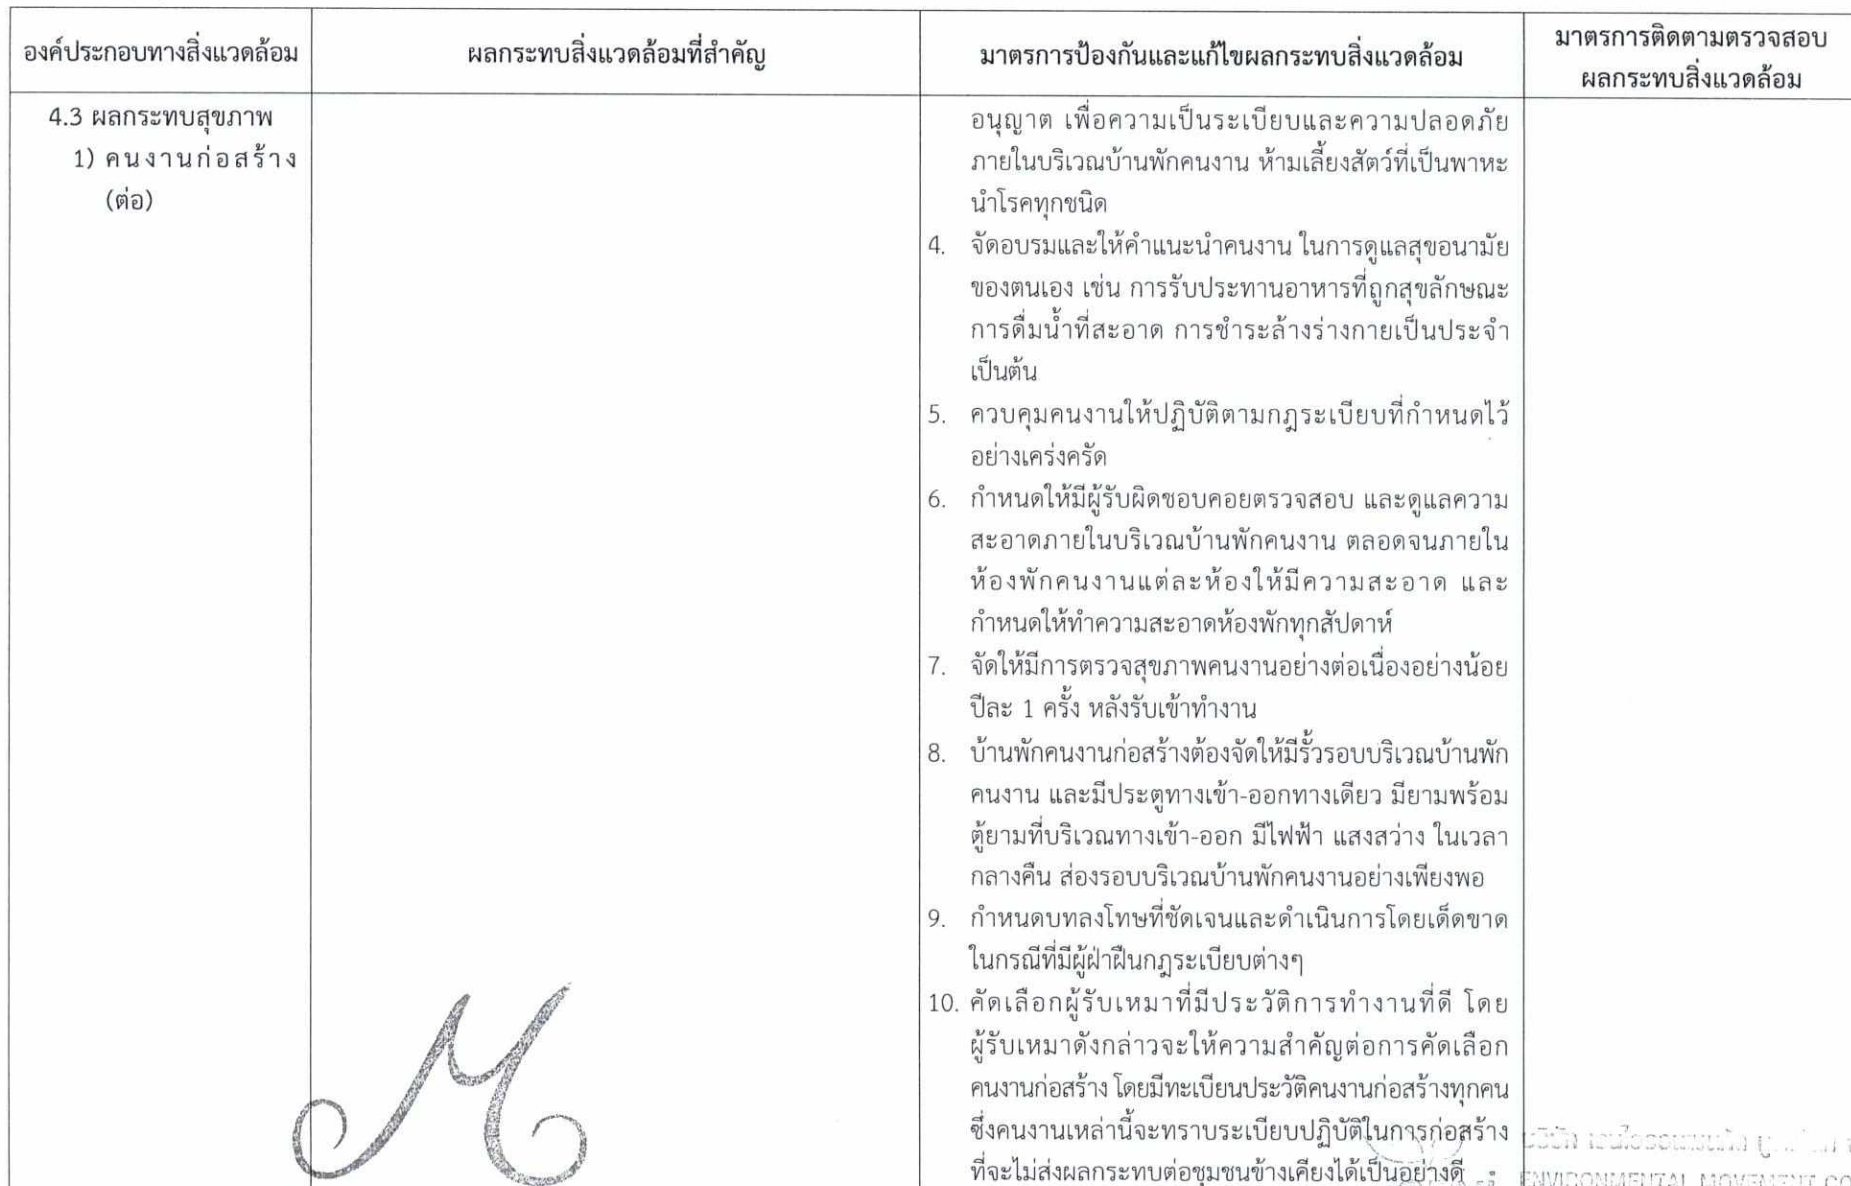 องค์ประกอบทางสิ่งแวดล้อม
ผลกระทบสิ่งแวดล้อมที่สำคัญ
มาตรการป้องกันและแก้ไขผลกระทบสิ่งแวดล้อม
มาตรการติดตามตรวจสอบ
ผลกระทบสิ่งแวดล้อม
4.3 ผลกระทบสุขภาพ
1) คนงานก่อสร้าง
(ต่อ)
อนุญาต เพื่อความเป็นระเบียบและความปลอดภัย
ภายในบริเวณบ้านพักคนงาน ห้ามเลี้ยงสัตว์ที่เป็นพาหะ
นำโรคทุกชนิด
4. จัดอบรมและให้คำแนะนำคนงาน ในการดูแลสุขอนามัย
ของตนเอง เช่น การรับประทานอาหารที่ถูกสุขลักษณะ
การดื่มน้ำที่สะอาด การชำระล้างร่างกายเป็นประจำ
เป็นต้น
5. ควบคุมคนงานให้ปฏิบัติตามกฎระเบียบที่กำหนดไว้
อย่างเคร่งครัด
6. กำหนดให้มีผู้รับผิดชอบคอยตรวจสอบ และดูแลความ
สะอาดภายในบริเวณบ้านพักคนงาน ตลอดจนภายใน
ห้องพักคนงานแต่ละห้องให้มีความสะอาด และ
กำหนดให้ทำความสะอาดห้องพักทุกสัปดาห์
7. จัดให้มีการตรวจสุขภาพคนงานอย่างต่อเนื่องอย่างน้อย
ปีละ 1 ครั้ง หลังรับเข้าทำงาน
8. บ้านพักคนงานก่อสร้างต้องจัดให้มีรั้วรอบบริเวณบ้านพัก
คนงาน และมีประตูทางเข้า-ออกทางเดียว มียามพร้อม
ตู้ยามที่บริเวณทางเข้า-ออก มีไฟฟ้า แสงสว่าง ในเวลา
กลางคืน ส่องรอบบริเวณบ้านพักคนงานอย่างเพียงพอ
9. กำหนดบทลงโทษที่ชัดเจนและดำเนินการโดยเด็ดขาด
ในกรณีที่มีผู้ฝ่าฝืนกฎระเบียบต่างๆ
10. คัดเลือกผู้รับเหมาที่มีประวัติการทำงานที่ดี โดย
ผู้รับเหมาดังกล่าวจะให้ความสำคัญต่อการคัดเลือก
คนงานก่อสร้าง โดยมีทะเบียนประวัติคนงานก่อสร้างทุกคน
ซึ่งคนงานเหล่านี้จะทราบระเบียบปฏิบัติในการก่อสร้าง
ที่จะไม่ส่งผลกระทบต่อชุมชนข้างเคียงได้เป็นอย่างดี
ENVIRONMENTAL MOVEMENT CO